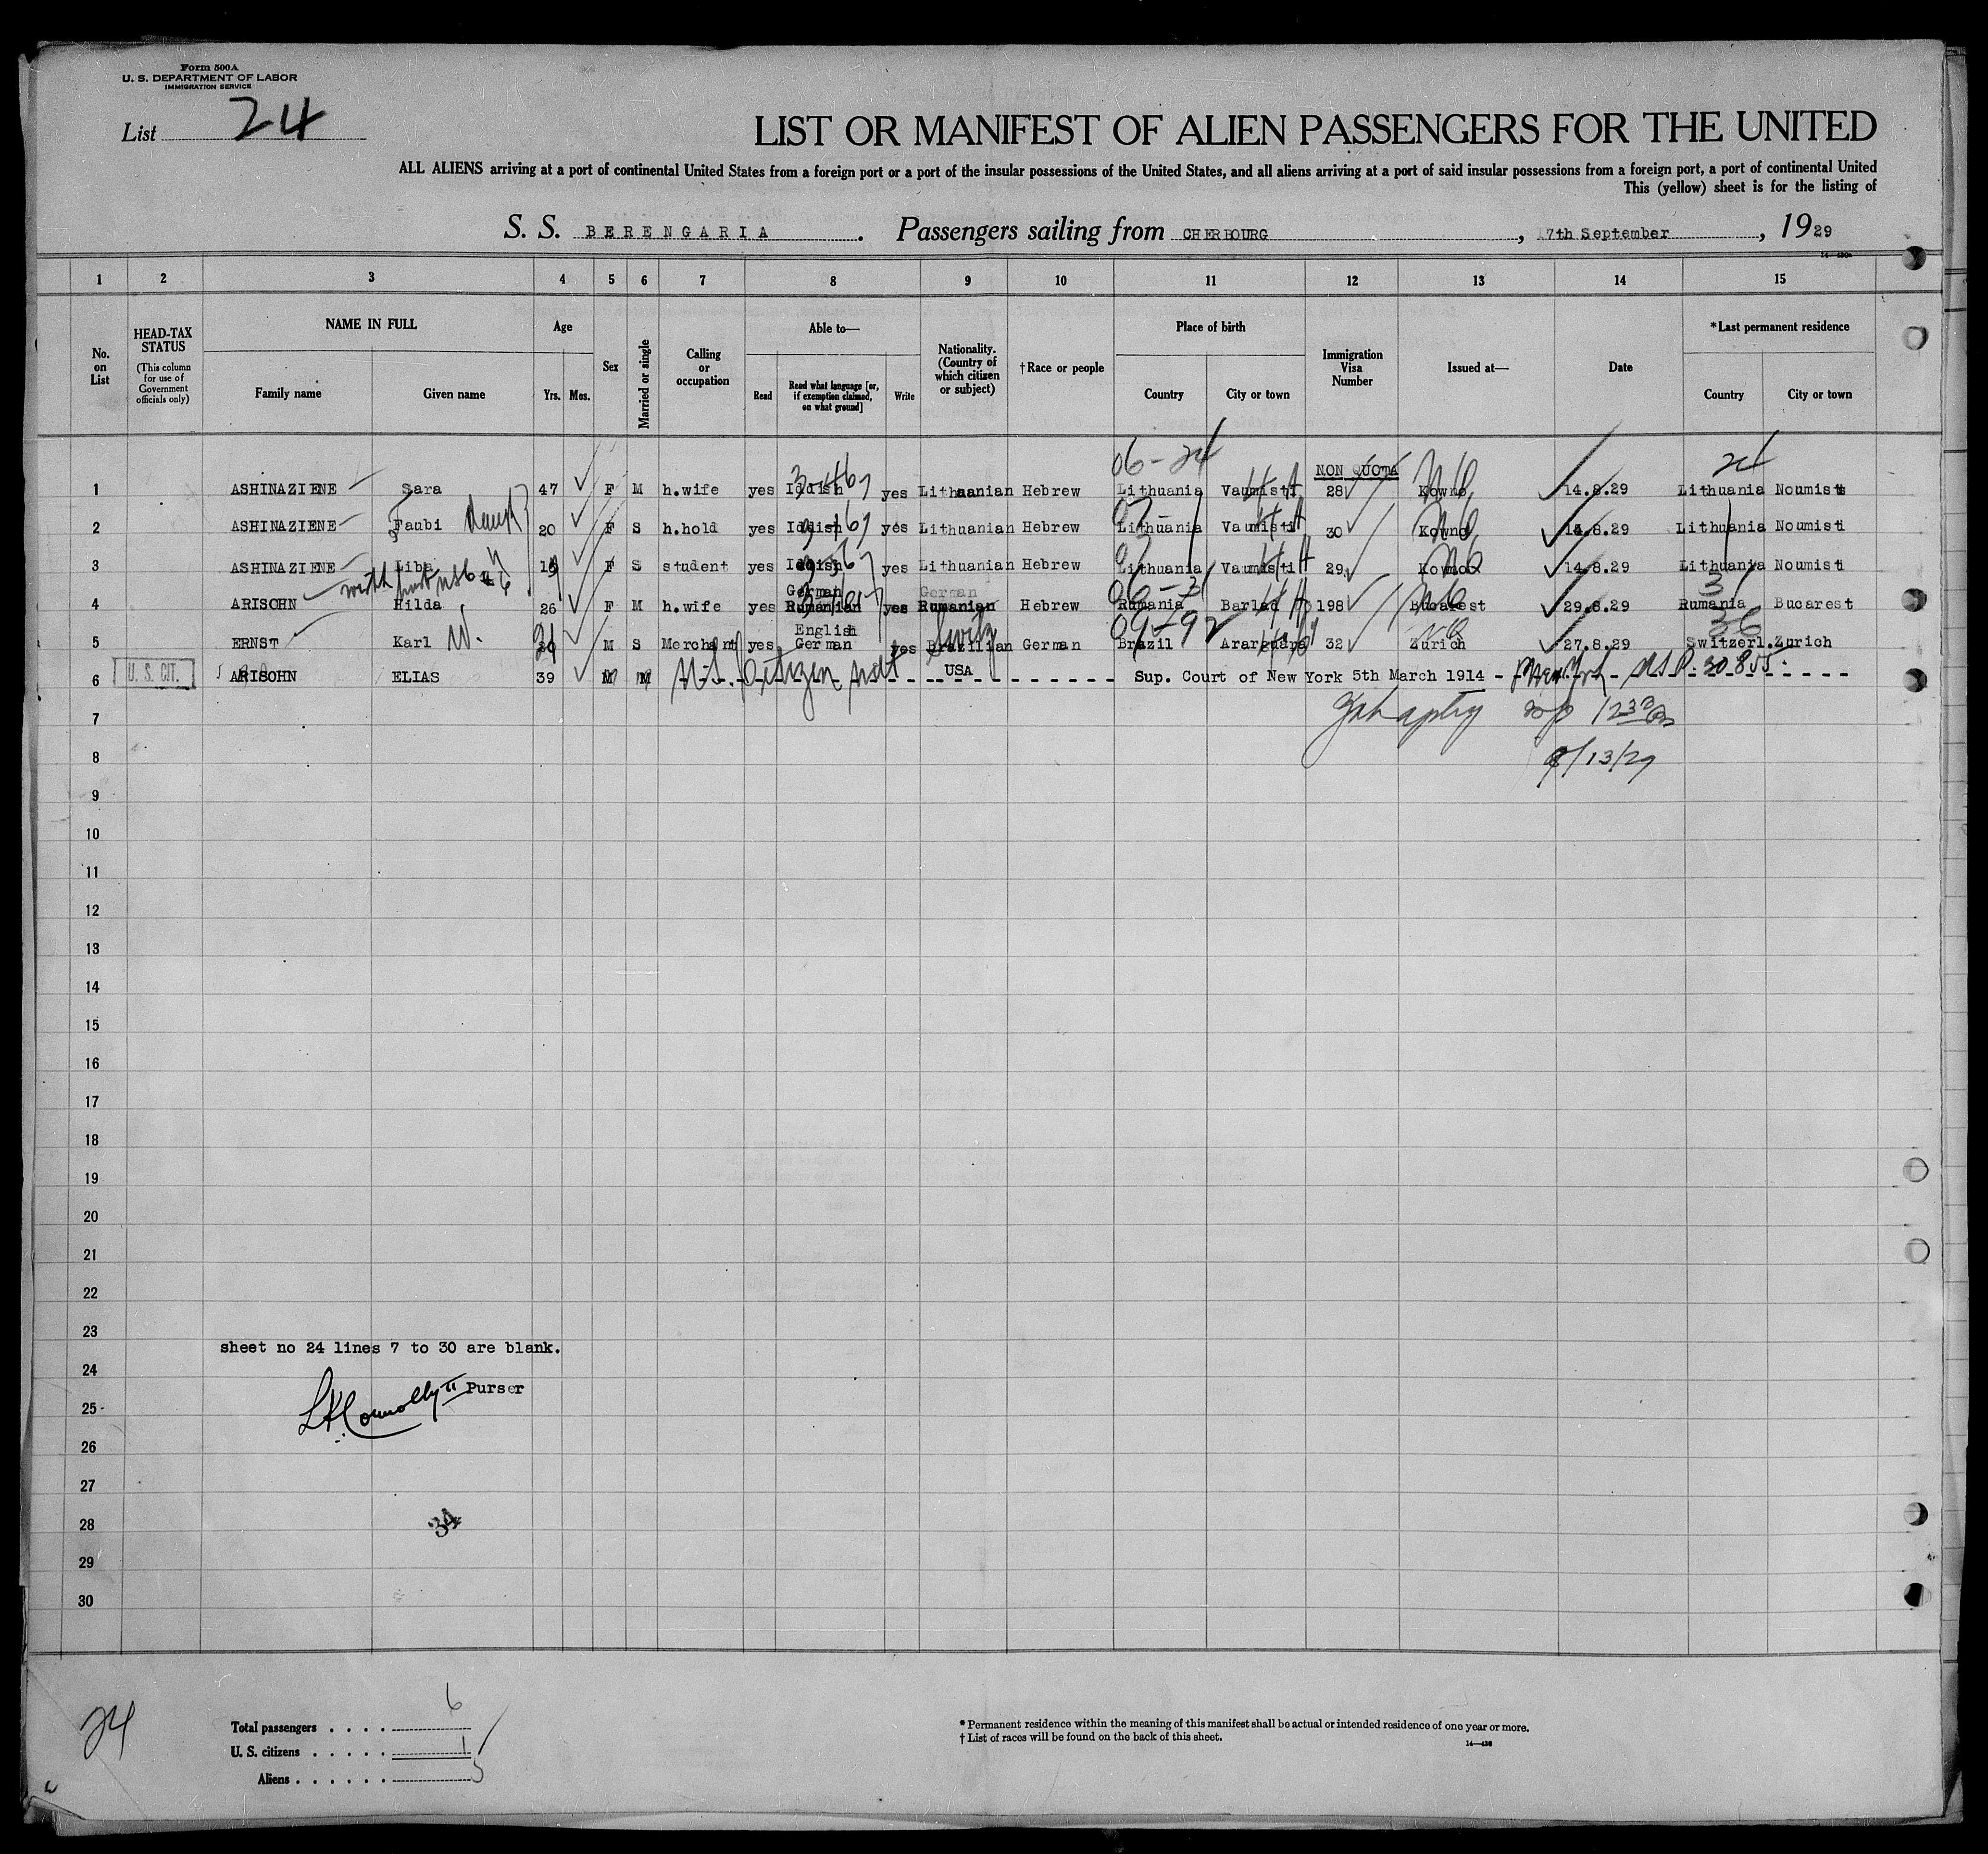 Form 500A
U. S. DEPARTMENT OF LABOR
IMMIGRATION SERVICE
List 24
LIST OR MANIFEST OF ALIEN PASSENGERS FOR THE UNITED
ALL ALIENS arriving at a port of continental United States from a foreign port or a port of the insular possessions of the United States, and all aliens arriving at a port of said insular possessions from a foreign port, a port of continental United
This (yellow) sheet is for the listing of
S. S. BERENGARIA . Passengers sailing from CHERBOURG , 7th September , 1929
1 2 3 4 5 6 7 8 9 10 11 12 13 14 15
No. on List
HEAD-TAX STATUS
(This column for use of Government officials only)
NAME IN FULL
Family name Given name
Age
Yrs. Mos.
Sex
Married or single
Calling or occupation
Able to—
Read Read what language [or, if exemption claimed, on what ground] Write
Nationality. (Country of which citizen or subject)
†Race or people
Place of birth
Country City or town
Immigration Visa Number
Issued at—
Date
*Last permanent residence
Country City or town
06-24 NON QUOTA 24
1 ASHINAZIENE Sara 47 F M h.wife yes Iddish yes Lithuanian Hebrew Lithuania Vaumisti 28 Kowno 14.8.29 Lithuania Noumisti
2 ASHINAZIENE Faubi 20 F S h.hold yes Iddish yes Lithuanian Hebrew Lithuania Vaumisti 30 Kowno 14.8.29 Lithuania Noumisti
3 ASHINAZIENE Liba F S student yes Iddish yes Lithuanian Hebrew Lithuania Vaumisti 29 Kowno 14.8.29 Lithuania Noumisti
German German
4 ARISOHN Hilda 26 F M h.wife yes Rumanian yes Rumanian Hebrew Rumania Barlad 198 Bucarest 29.8.29 Rumania Bucarest
English
5 ERNST Karl W. M S Merchant yes German yes Brazilian German Brazil Araraguara 32 Zurich 27.8.29 Switzerl. Zurich
6 U. S. CIT. ARISOHN ELIAS 39 M M U.S. Citizen USA Sup. Court of New York 5th March 1914 New York
7
8 9/13/29
9
10
11
12
13
14
15
16
17
18
19
20
21
22
23
sheet no 24 lines 7 to 30 are blank.
24
Purser
25
26
27
28
34
29
30
24
Total passengers . . . . 6
U. S. citizens . . . . . 1
Aliens . . . . . . 5
* Permanent residence within the meaning of this manifest shall be actual or intended residence of one year or more.
† List of races will be found on the back of this sheet.